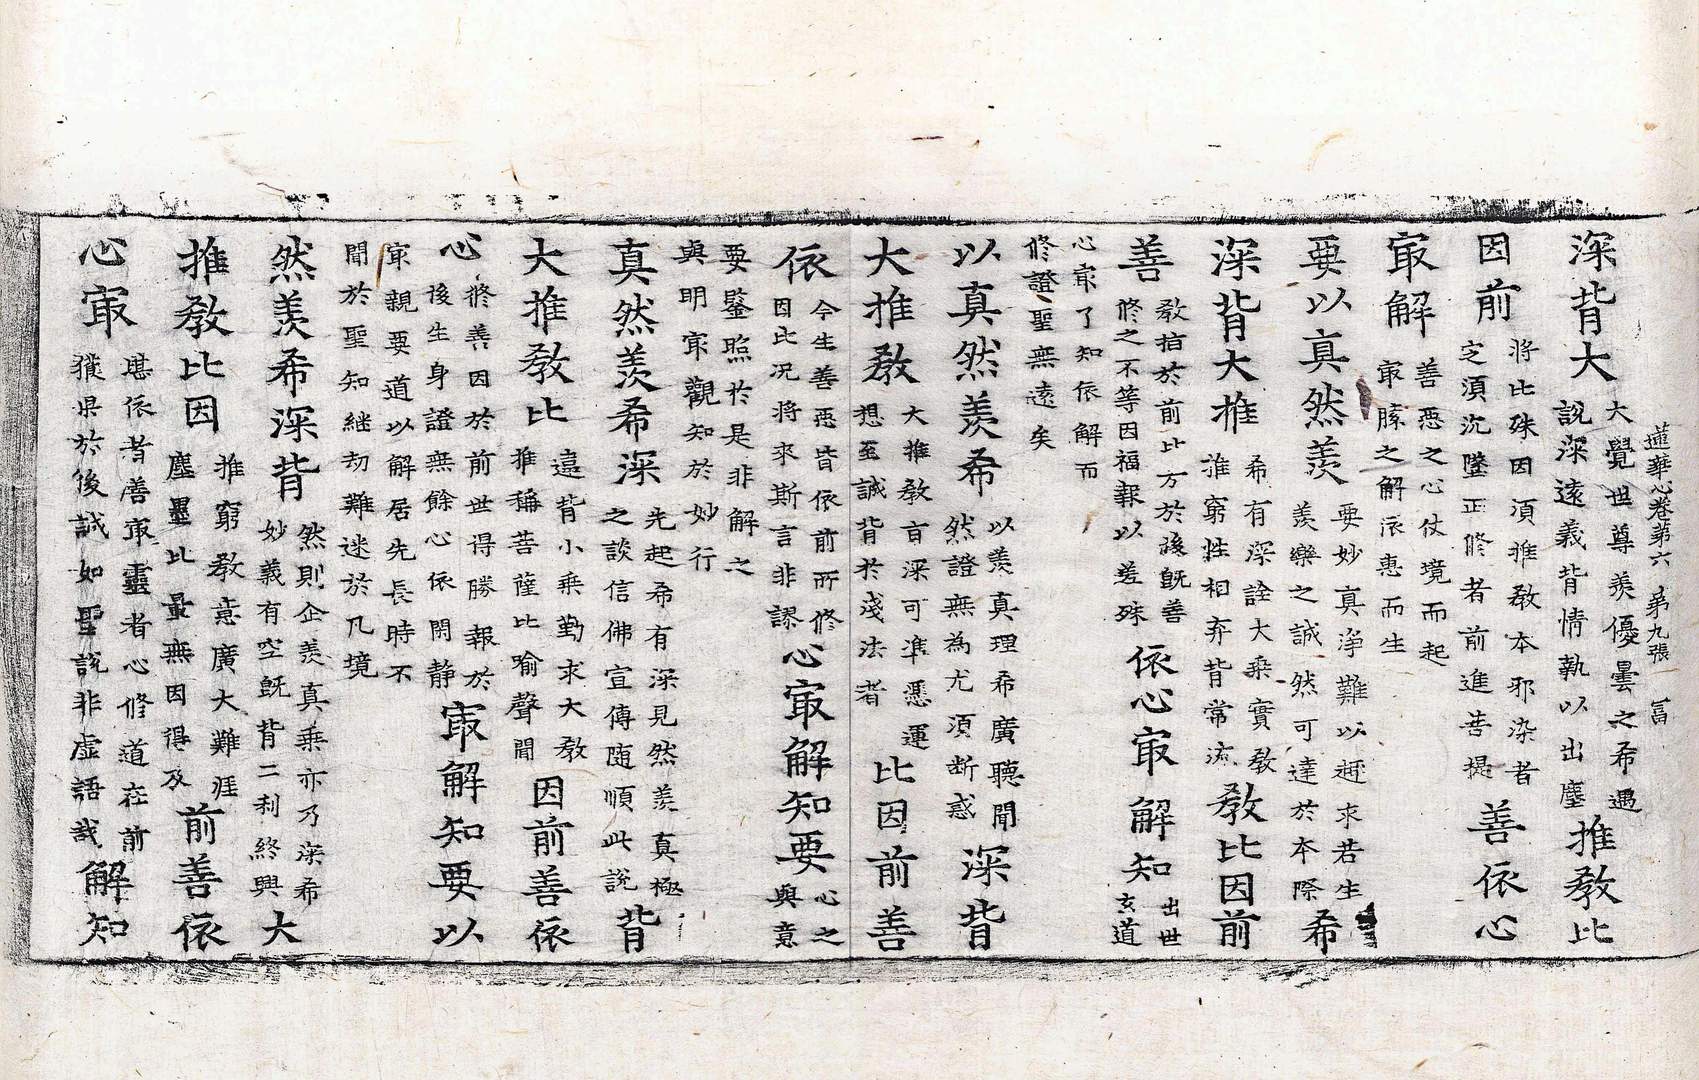 蓮華心卷第六　第九張　富
深背大
大覺世尊羨優曇之希遇
說深遠義背情執以出塵
推教比
因前
將比殊因須推教本邪染者
定須沉墜正修者前進菩提
善依心
㝡解
善惡之心仗境而起
㝡勝之解依惠而生
要以真然羨
要妙真淨難以趣求若生
羨樂之誠然可達於本際
希
深背大推
希有深詮大乘實教
推窮性相弃背常流
教比因前
善
教指於前比方於後既善
修之不等因福報以差殊
依心㝡解知
出世
玄道
心㝡了知依解而
修證聖無遠矣
以真然羨希
以羨真理希廣聽聞
然證無為尤須断惑
深背
大推教
大推教旨深可準憑運
想至誠背於淺法者
比因前善
依
今生善惡皆依前所修
因比況將來斯言非謬
心㝡解知要
心之
與意
要鑒照於是非解之
與明㝡觀知於妙行
真然羨希深
先起希有深見然羨真極
之談信佛宣傳随順此說
背
大推教比
遠背小乘勤求大教
推稱菩薩比喻聲聞
因前善依
心
修善因於前世得勝報於
後生身證無餘心依閑静
㝡解知要以
㝡親要道以解居先長時不
聞於聖知継劫難迷於凡境
然羨希深背
然則企羨真乘亦乃深希
妙義有空既背二利終興
大
推教比因
推窮教意廣大難涯
塵墨比量無因得及
前善依
心㝡
堪依者善㝡靈者心修道在前
獲果於後誠如聖說非虛語哉
解知